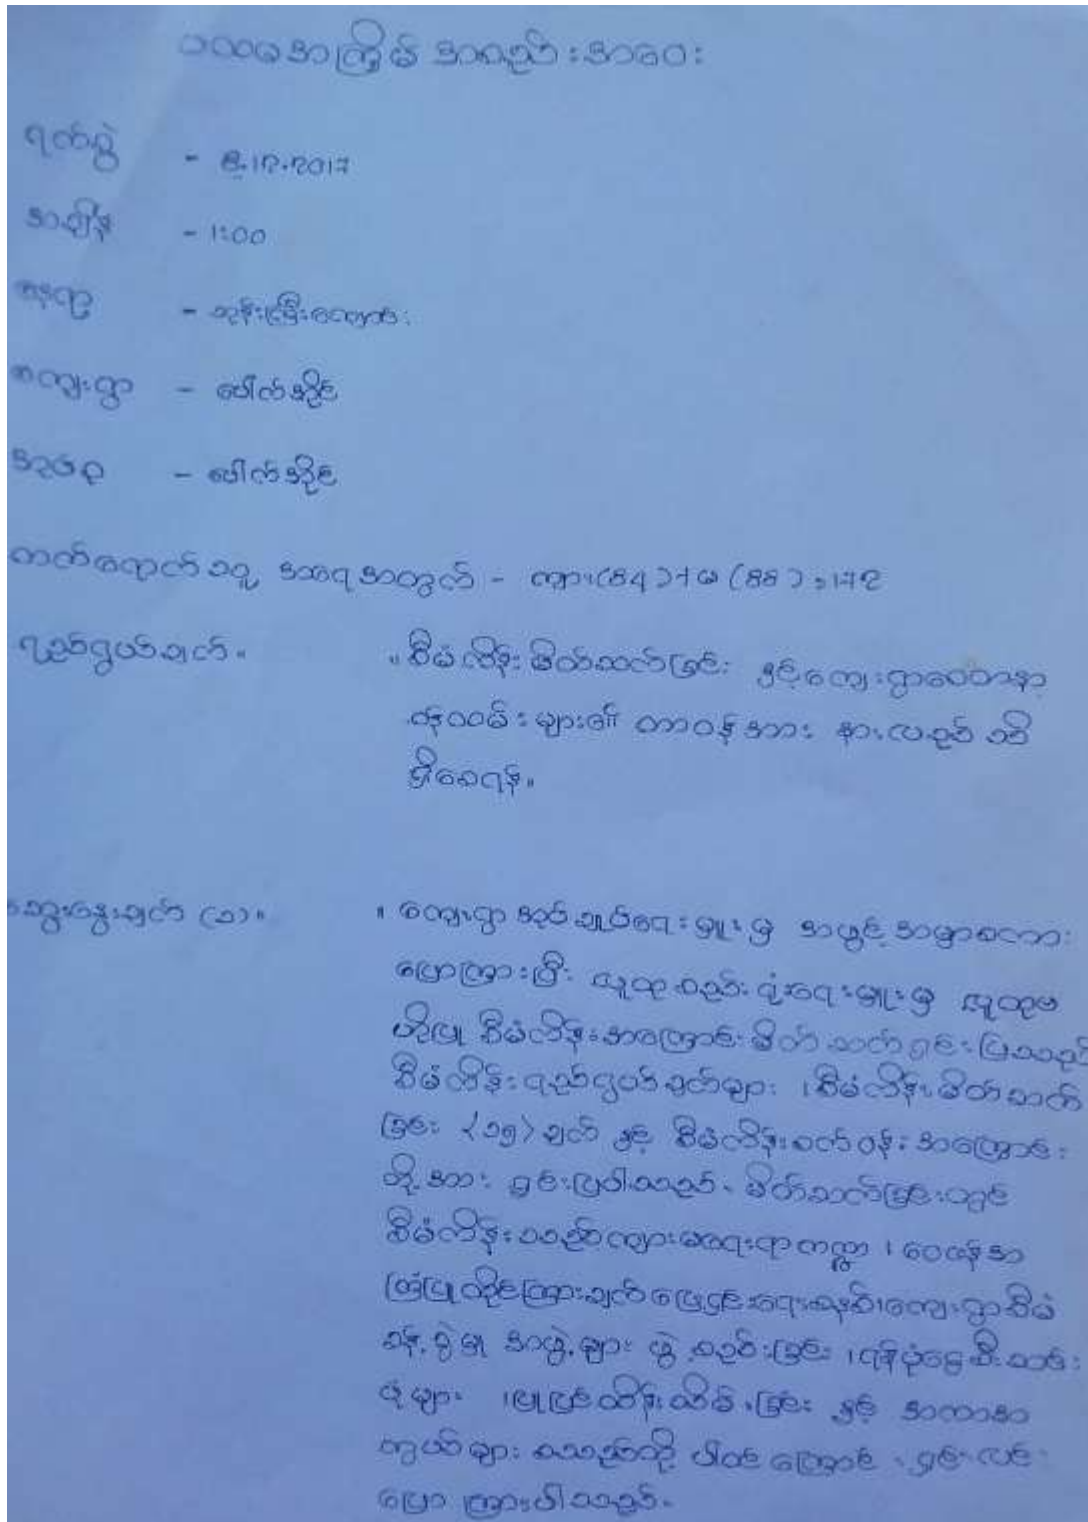 ပထမအကြိမ် အစည်းအဝေး
ရက်စွဲ - 8.12.2017
အချိန် - 1:00
နေရာ - ဘုန်းကြီးကျောင်း
ကျေးရွာ - ပေါက်အိုင်
အုပ်စု - ပေါက်အိုင်
တက်ရောက်သူ အရေအတွက် - ကျား(84)+မ(88)=172
ရည်ရွယ်ချက်။ ။စီမံကိန်း မိတ်ဆက်ခြင်း နှင့်ကျေးရွာစေတနာ့
ဝန်ထမ်းများ၏ တာဝန်အား နားလည် သိ
ရှိစေရန်။
ဆွေးနွေးချက် (၁)။ ။ ကျေးရွာ အုပ်ချုပ်ရေးမှူးမှ အဖွင့် အမှာစကား
ပြောကြားပြီး လူထုစည်းရုံးရေးမှူးမှ လူထုဗ
ဟိုပြု စီမံကိန်းအကြောင်း မိတ်ဆက်ရှင်းပြသည်
စီမံကိန်းရည်ရွယ်ချက်များ ၊စီမံကိန်းမိတ်ဆက်
ခြင်း (၁၅)ချက် နှင့် စီမံကိန်းစက်ဝန်းအကြောင်း
တို့အား ရှင်းပြပါသည်။ မိတ်ဆက်ခြင်းတွင်
စီမံကိန်းသည်ကျားမရေးရာကဏ္ဍ ၊ ဝေဖန်အ
ကြံပြုတိုင်ကြားချက်ဖြေရှင်းရေးစနစ်၊ကျေးရွာစီမံ
ခန့်ခွဲမှု အဖွဲ့များ ဖွဲ့စည်းခြင်း ၊ရန်ပုံငွေစီးဆင်း
ပုံများ ၊ပြုပြင်ထိန်းသိမ်းခြင်း နှင့် အကာအ
ကွယ်များ စသည်တို့ ပါဝင်ကြောင်း ရှင်းလင်း
ပြောကြားပါသည်။